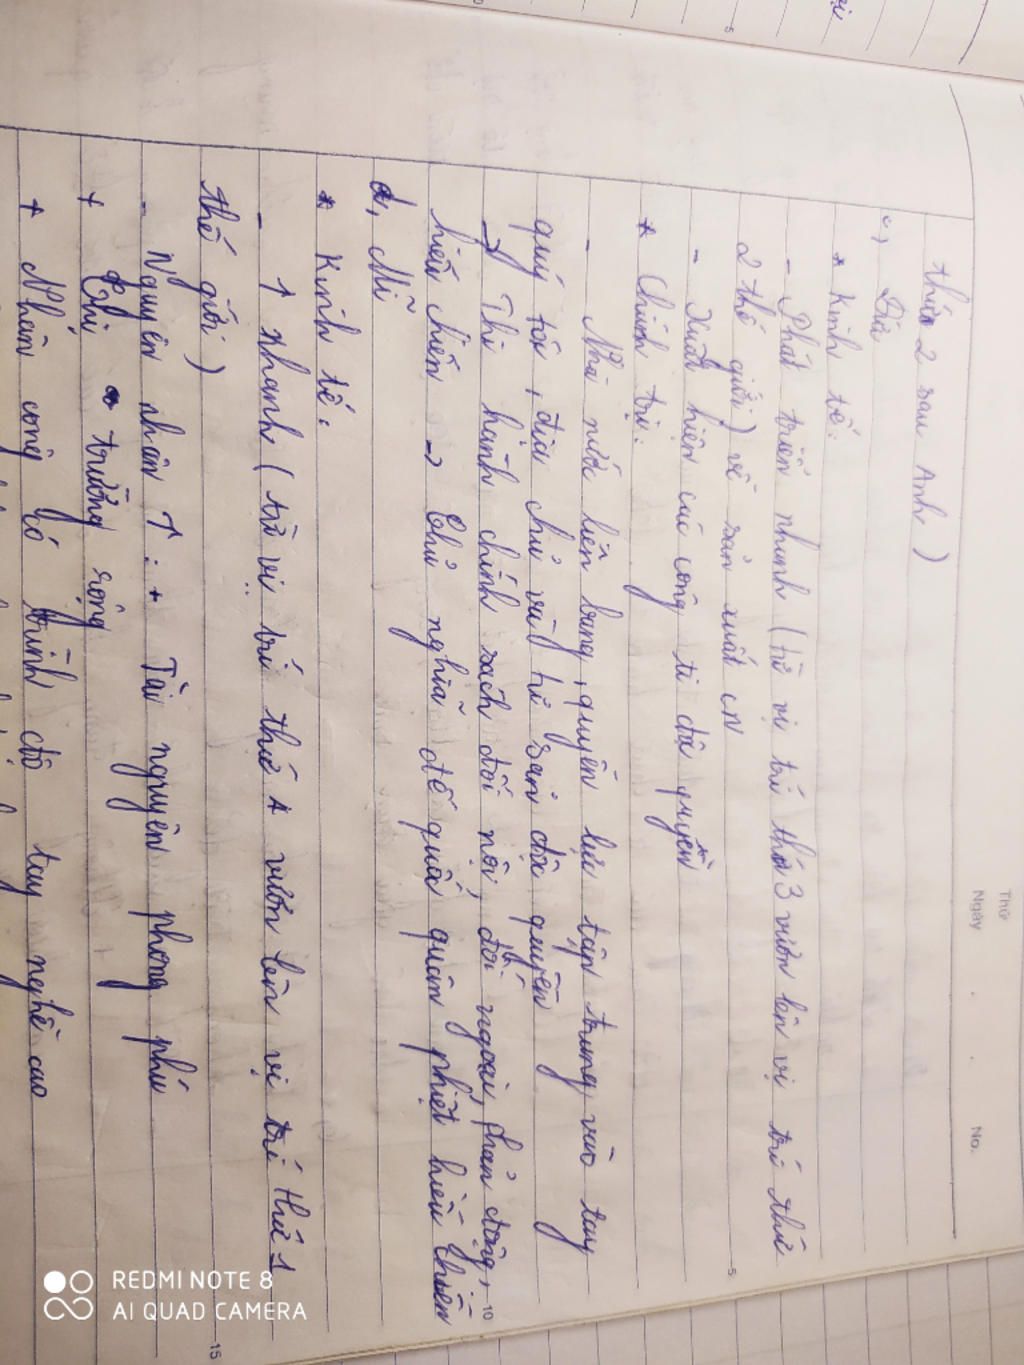 Thứ
Ngày No.
thứ 2 sau Anh)
c, Đức
* Kinh tế:
- Phát triển nhanh (từ vị trí thứ 3 vươn lên vị trí thứ
2 thế giới) về sản xuất CN
- Xuất hiện các công ti độc quyền
* Chính trị:
- Nhà nước liên bang, quyền lực tập trung vào tay
quý tộc, địa chủ và tư sản độc quyền
→ Thi hành chính sách đối nội, đối ngoại, phản động,
hiếu chiến → Chủ nghĩa đế quốc quân phiệt hiếu chiến
d, Mĩ
* Kinh tế:
- ↑ nhanh (từ vị trí thứ 4 vươn lên vị trí thứ 1
thế giới)
- Nguyên nhân ↑: + Tài nguyên phong phú
+ Thị trường rộng
+ Nhân công có trình độ tay nghề cao
5
10
15
5
REDMI NOTE 8
AI QUAD CAMERA